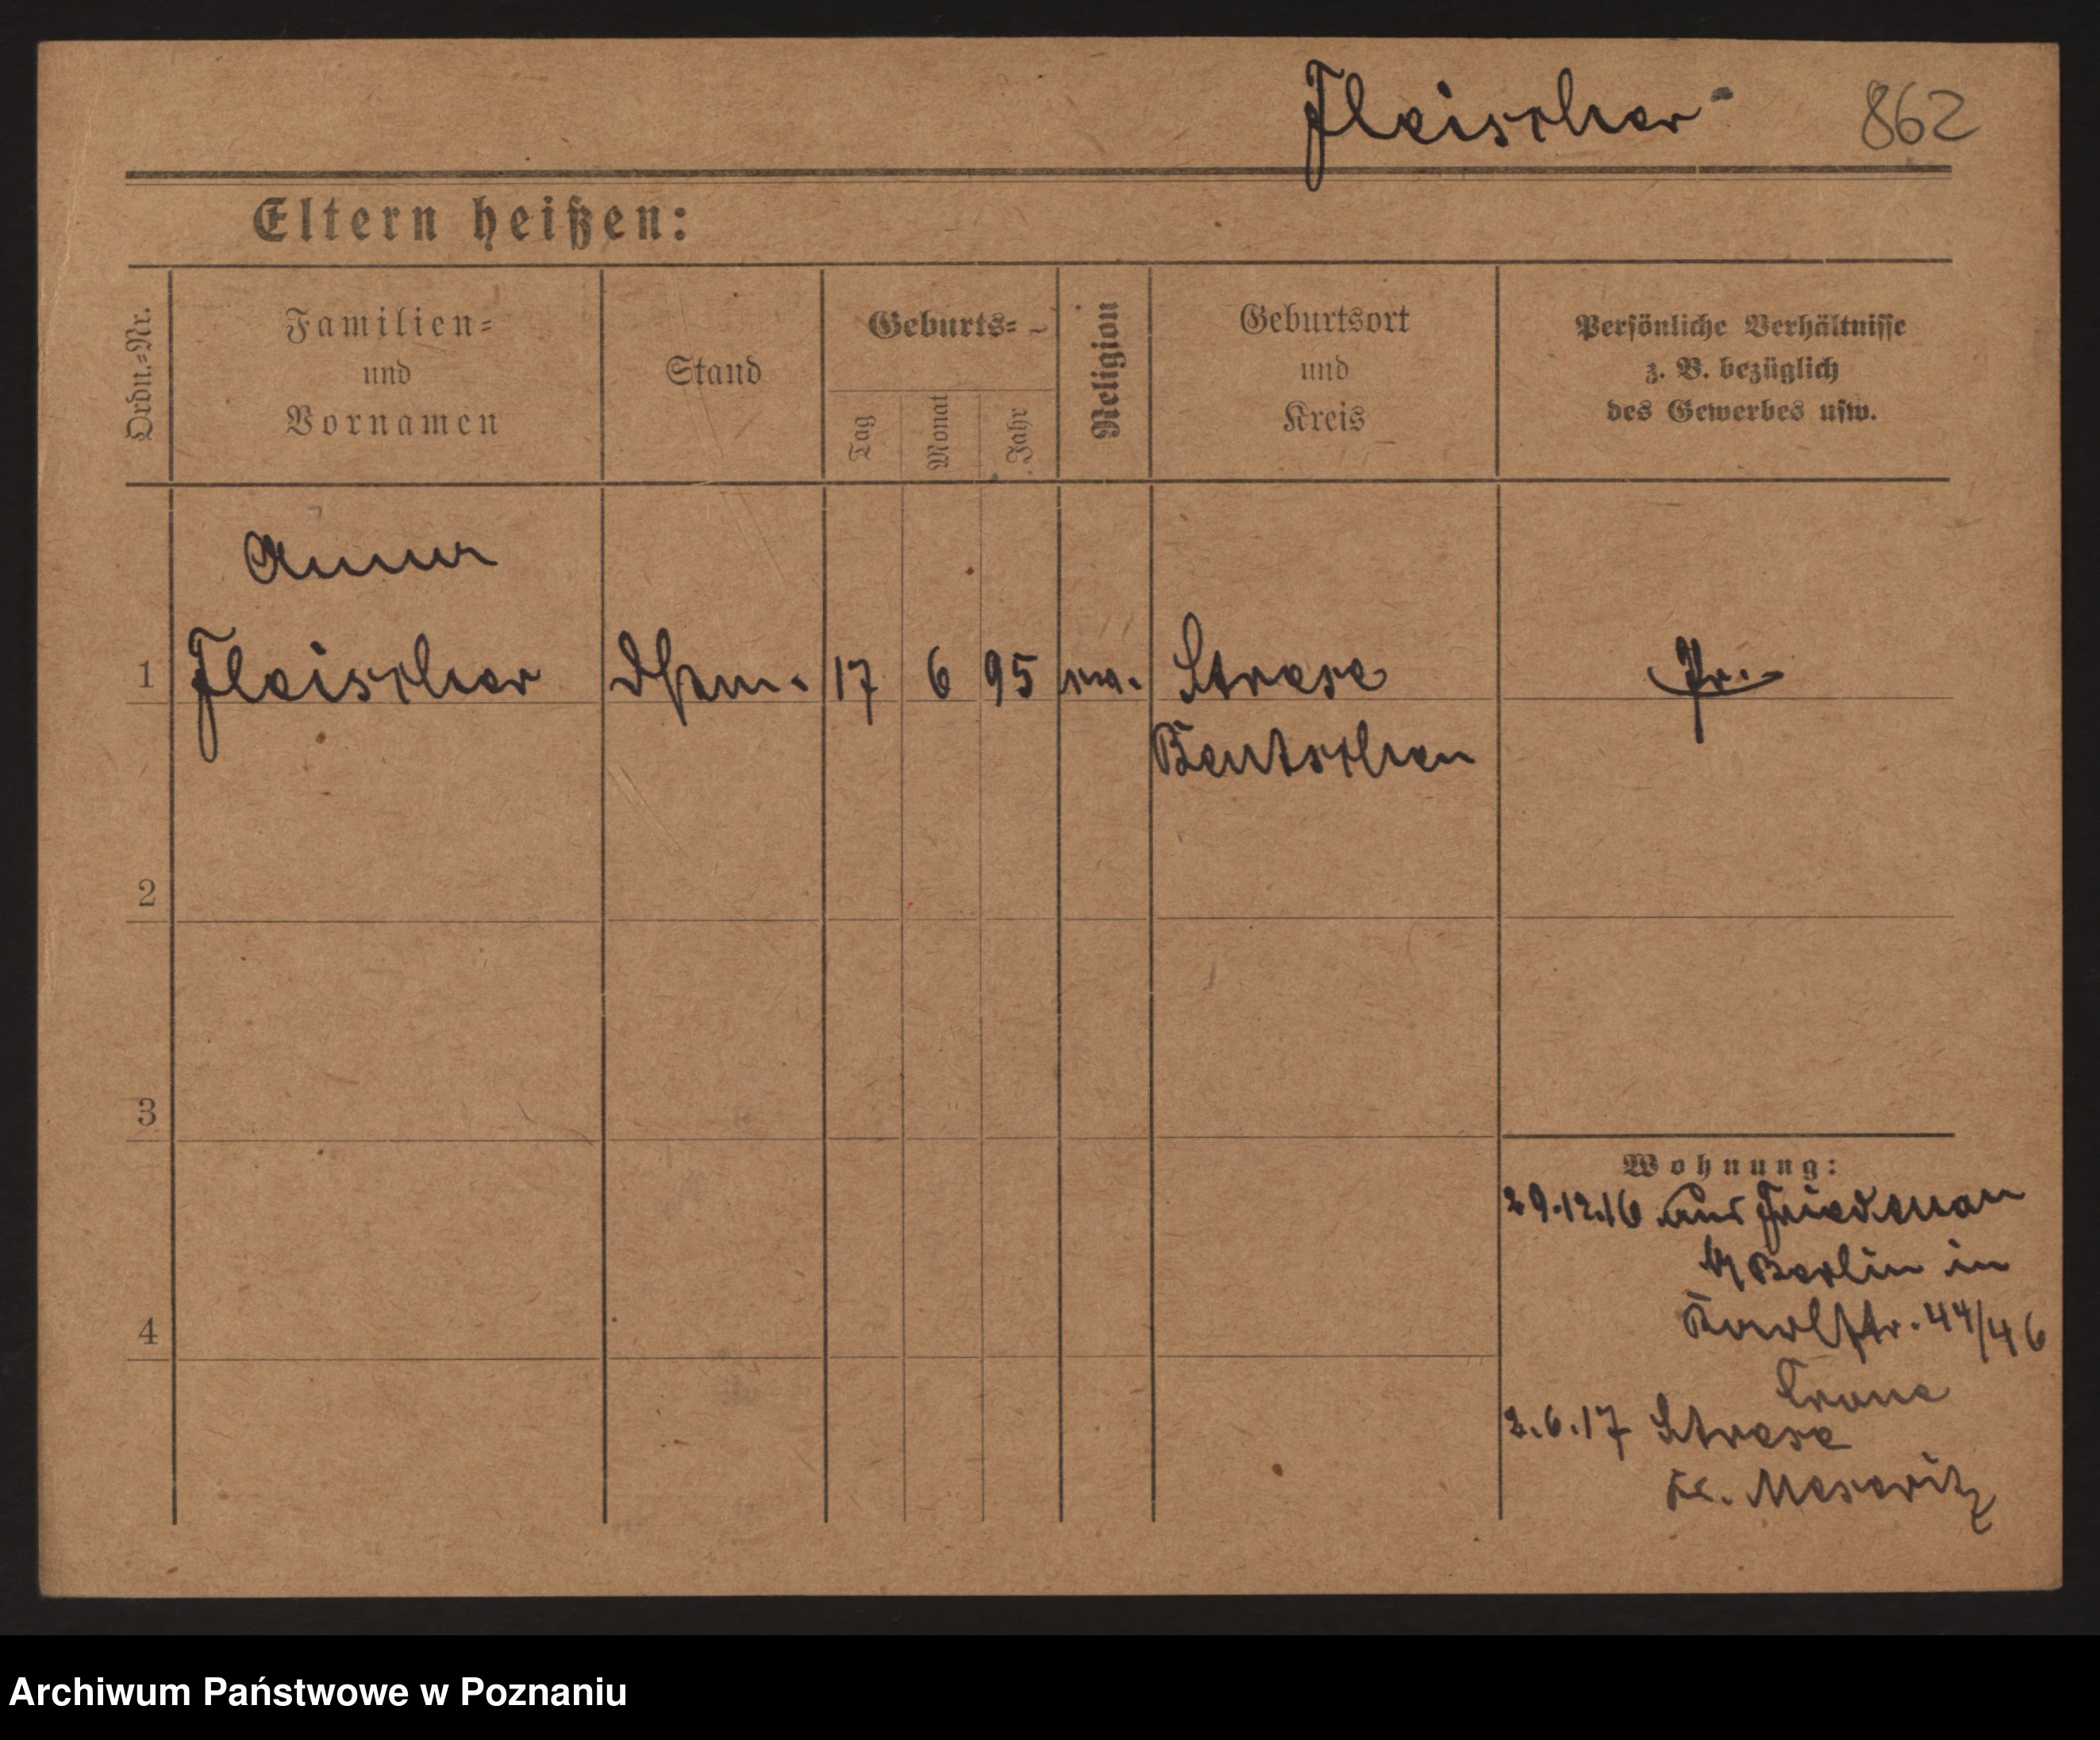 Fleischer 862
Eltern heißen:
Ordn.=Nr.
Familien=
und
Vornamen
Stand
Geburts=
Tag
Monat
Jahr
Religion
Geburtsort
und
Kreis
Persönliche Verhältnisse
z. B. bezüglich
des Gewerbes usw.
Anna
1 Fleischer 17 6 95 Strese Pr.
Bentschen
2
3
4
Wohnung:
29.12.16 aus Friedenau
b/ Berlin in
Karlstr. 44/46
2.6.17 Strese
Kr. Meseritz
Archiwum Państwowe w Poznaniu